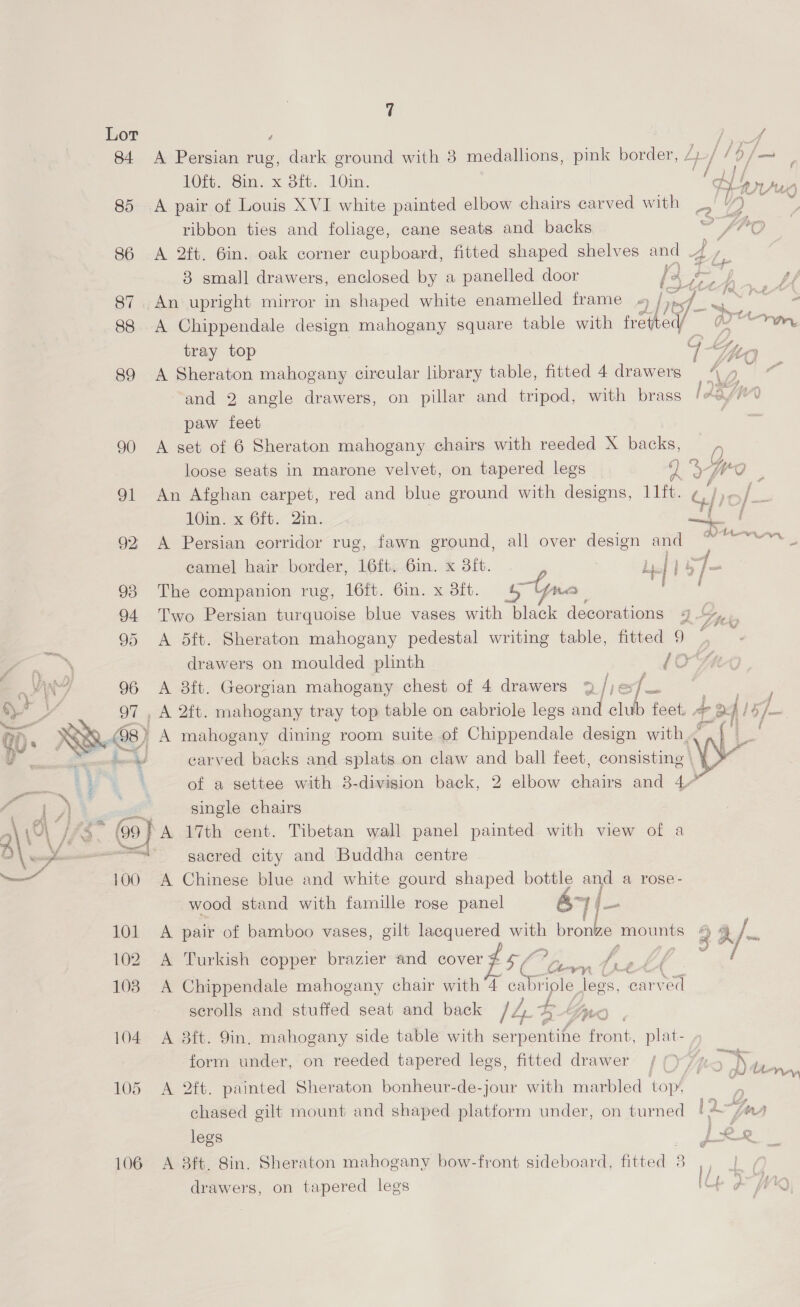 7
Lot
84 A Persian rug, dark ground with 3 medallions, pink border,
10ft. 8in. x 3ft. 10in.
85 A pair of Louis XVI white painted elbow chairs carved with
ribbon ties and foliage, cane seats and backs
86 A 2ft. 6in. oak corner cupboard, fitted shaped shelves and
3 small drawers, enclosed by a panelled door
87 An upright mirror in shaped white enamelled frame
88 A Chippendale design mahogany square table with fretted
tray top
89 A Sheraton mahogany circular library table, fitted 4 drawers
and 2 angle drawers, on pillar and tripod, with brass
paw feet
90 A set of 6 Sheraton mahogany chairs with reeded X backs,
loose seats in marone velvet, on tapered legs
91 An Afghan carpet, red and blue ground with designs, 11ft.
10in. x 6ft. 2in.
92 A Persian corridor rug, fawn ground, all over design and
camel hair border, 16ft. 6in. x 3ft.
93 The companion rug, 16ft. 6in. x 3ft.
94 Two Persian turquoise blue vases with black decorations
95 A 5ft. Sheraton mahogany pedestal writing table, fitted 9
drawers on moulded plinth
96 A 3ft. Georgian mahogany chest of 4 drawers
97 A 2ft. mahogany tray top table on cabriole legs and club feet
98 A mahogany dining room suite of Chippendale design with
carved backs and splats on claw and ball feet, consisting
of a settee with 3-division back, 2 elbow chairs and 4
single chairs
99 A 17th cent. Tibetan wall panel painted with view of a
sacred city and Buddha centre
100 A Chinese blue and white gourd shaped bottle and a rose-
wood stand with famille rose panel
101 A pair of bamboo vases, gilt lacquered with bronze mounts
102 A Turkish copper brazier and cover
103 A Chippendale mahogany chair with 4 cabriole legs, carved
scrolls and stuffed seat and back
104 A 3ft. 9in. mahogany side table with serpentine front, plat-
form under, on reeded tapered legs, fitted drawer
105 A 2ft. painted Sheraton bonheur-de-jour with marbled top,
chased gilt mount and shaped platform under, on turned
legs
106 A 3ft. 8in. Sheraton mahogany bow-front sideboard, fitted 3
drawers, on tapered legs